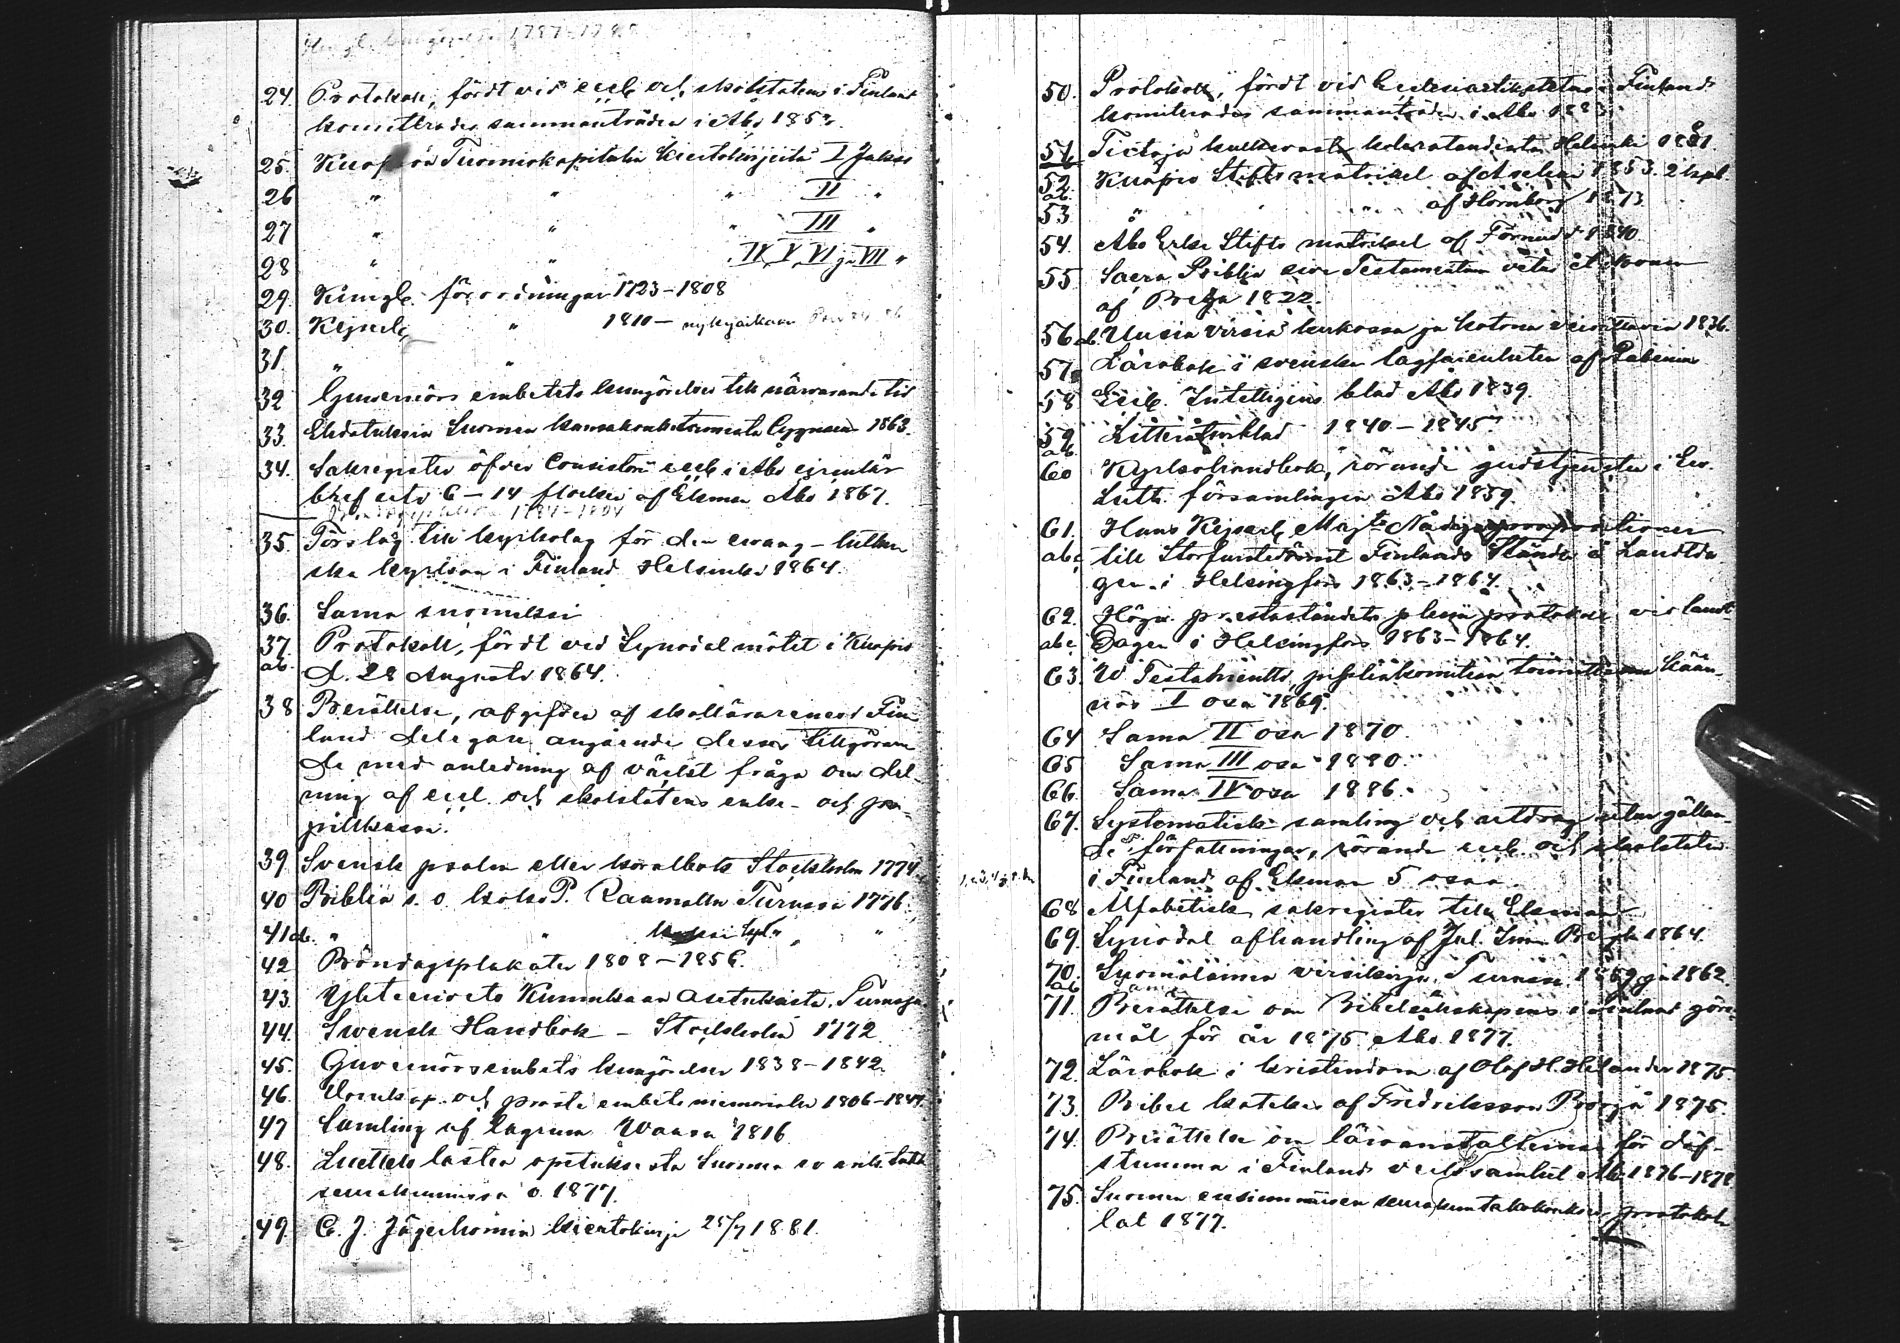 24. Protokoll, fördt vid eccl. och skolstatens i Finland
komiterades sammanträde i Åbo 1853.
25. Kuopion Tuomiokapitulin kiertokirjeitä I Jakso
26 " " " II "
27 " " " III "
28 " " IV, V, VI ja VII "
29. Kungl. förordningar 1723-1808
30. Kejserl. " 1810 - nykyaikaan
31. " "
32 Guvernörs embetets kungörelser till närvarande tid
33. Ehdotuksia Suomen kansakoulutoimesta Cygnaeus 1863.
34. Sakregister öfver Consistorii eccl. i Åbo circulär
bref 6-14 flocken af Ekman Åbo 1867.
35 Förslag till kyrkolag för den evang-luther
ska kyrkan i Finland Helsinki 1864.
36. Sama suomeksi
37. Protokoll, fördt vid Synodal mötet i Kuopio
ab. d. 28 Augusti 1864.
38 Berättelse, afgifven af skollärarenes i Fin
land delegare angående desses tillgöran
de med anledning af väckt fråga om del
ning af eccl. och skolstatens enke- och pu-
pillkassa.
39 Svensk psalm eller koralbok Stockholm 1774
40 Biblia s. o. koko P. Raamattu Turussa 1776.
41 ab. " " kpl. " "
42 Böndagsplakater 1808-1856.
43. Yhteisiä Kunnallisia asetuksia. Turussa
44. Swensk Handbok - Stockholm 1772
45. Guvernörsembets kungörelser 1838-1842.
46. Domkap. och prosts embets memorialer 1806-1844.
47 Samling af lagrum Waasa 1816
48. Luettelo lasten opetuksesta Suomen ev. luth.
seurakunnissa v. 1877.
49. C. J. Jägerhornin kiertokirje 25/7 1881.
50. Protokoll, fördt vid Ecclesiastikstatens i Finland
komiterades sammanträde i Åbo 1883.
51. Tietoja Helsinki 1881
52. Kuopio Stiftsmatrikel af Aschan 1853. 2 kpl.
ab.
53 " " " af Hornborg 1873
54. Åbo Erke Stifts matrikel af 1840.
55 Sacra Biblia sive Testamentum vetus
af Beza 1822.
56 ab. Uusia virsiä kirkossa ja kotona veisattavia 1836.
57. Lärobok i svenska lagfarenheten af Rabenius
58 Eccl. Intelligens blad Åbo 1839.
59. Litteraturblad 1840-1845
ab.
60 Kyrkohandbok, rörande gudstjensten i Ev.
Luth. församlingen Åbo 1859.
61. Hans Kejserl. Majts Nådiga propositioner
abc till Storfurstendömet Finlands Ständer å Landtda
gen i Helsingfors 1863-1864.
62. Högv. presteståndets plena protokoll vid landt-
abc Dagen i Helsingfors 1863-1864.
63. U Testamentti, pipliakomitean toimittama kään-
nös I osa 1869.
64 Sama II osa 1870.
65 Sama III osa 1880.
66 Sama IV osa 1886.
67. Systematisk samling och utdrag utur gällan
de författningar, rörande eccl. och skolstaten
i Finland af Ekman 5 osaa
68 Alfabetisk sakregister till Ekman
69. Synodal afhandling af Jul. Imm. Bergh 1864
70. Suomalainen virsikirja, Turussa. 1859 ja 1862.
ab
71. Berättelse om Bibelsällskapens i Finland göre-
mål för år 1875 Åbo 1877.
72. Lärobok i kristendom af Olof H. Helander 1875
73. Bibel katekes af Fredriksson Borgå 1875
74. Berättelse om läroanstalterna för döf-
stumma i Finlands verksamhet 1876-1878
75. Suomen ensimmäisen seurakuntakokouksen protokol-
lat 1877.